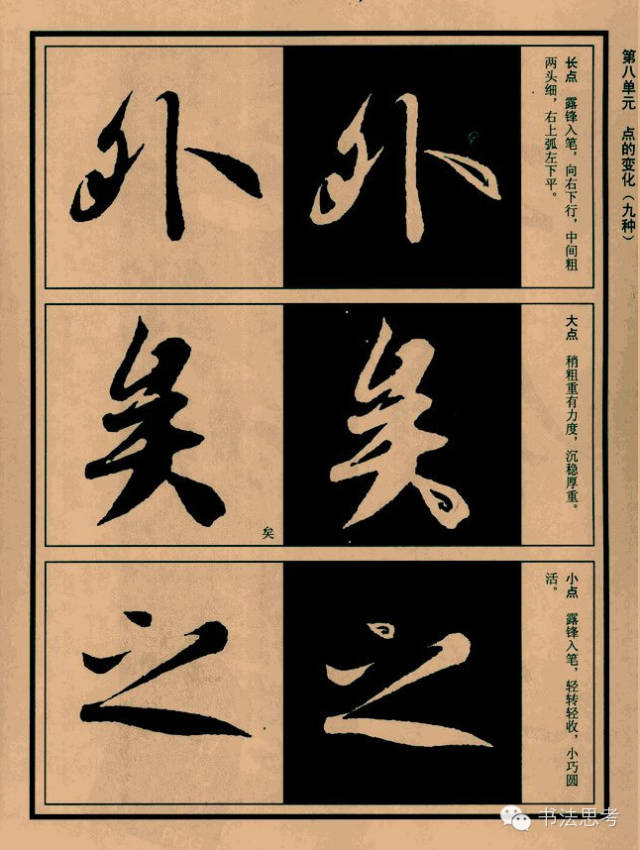 第八单元 点的变化（九种）
长点 露锋入笔，向右下行，中间粗
两头细，右上弧左下平。
外
外
大点 稍粗重有力度，沉稳厚重。
矣
矣
矣
小点 露锋入笔，轻转轻收，小巧圆
活。
之
之
书法思考